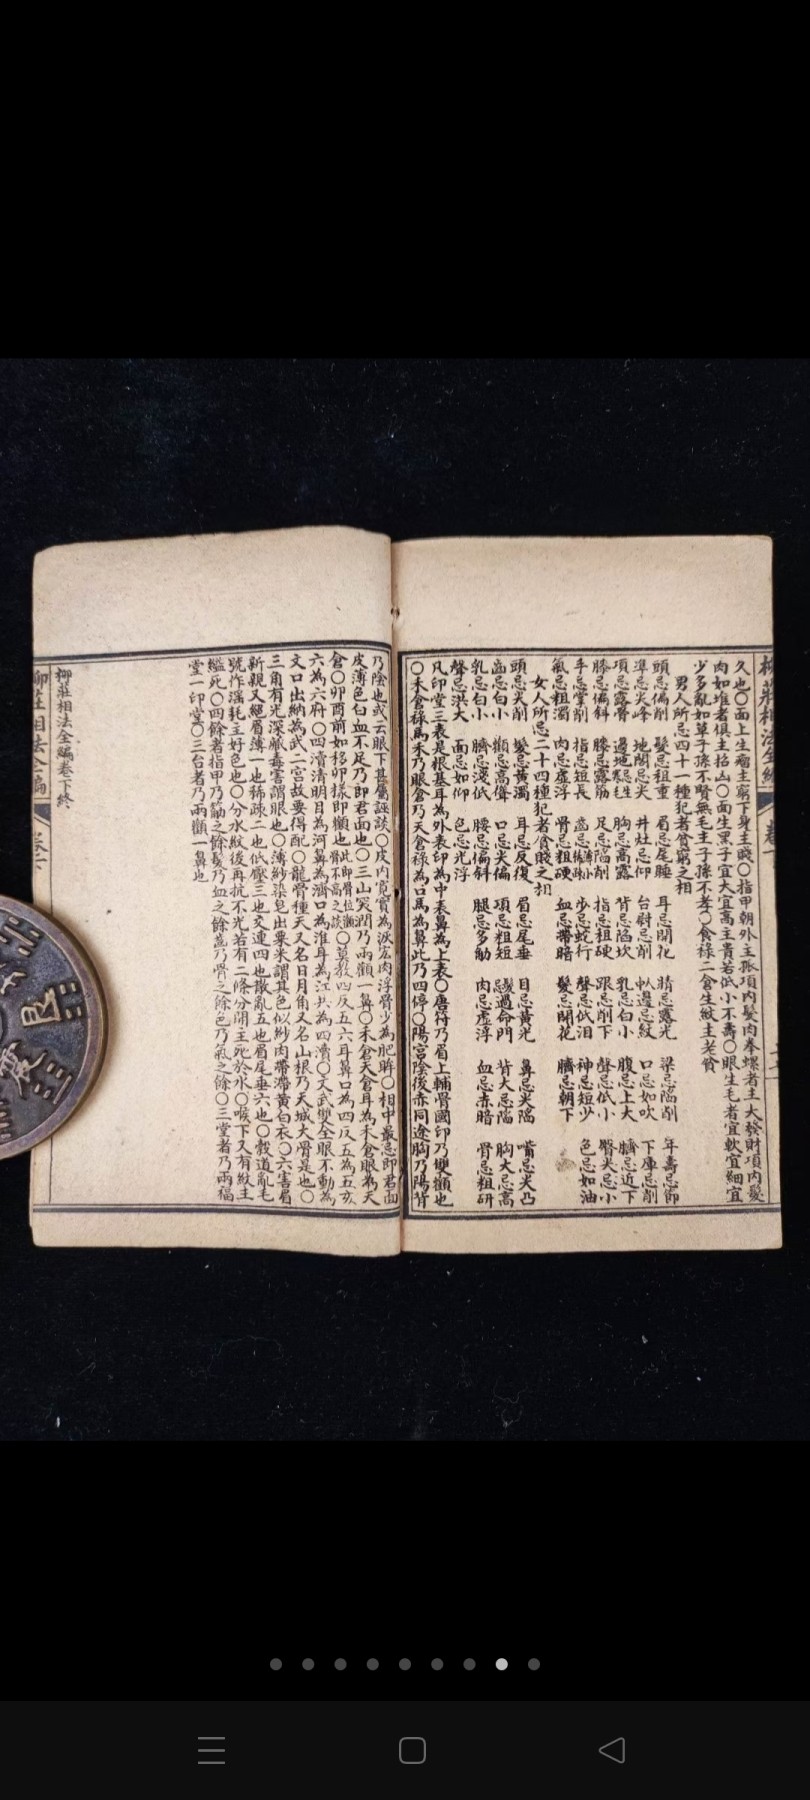 柳莊相法全編
久也〇面上生瘤主窮下身主賤〇指甲朝外主孤項内髮肉拳螺者主大發財項内髮
肉如堆者俱主招凶〇面生黑子宜大宜高主貴若低小不壽〇眼生毛者宜軟宜細宜
少多亂如草子孫不賢無毛主子孫不孝〇食祿二倉生紋主老貧
男人所忌四十一種犯者貧窮之相
頭忌偏削 髮忌粗重 眉忌尾垂 耳忌開花 睛忌露光 梁忌陷削 年壽忌節
準忌尖峰 地閣忌尖 井灶忌仰 台尉忌削 忌紋 口忌如吹 下庫忌削
項忌露骨 邊地忌生 胸忌高露 背忌陷坎 乳忌白小 腹忌上大 臍忌近下
膝忌偏斜 膝忌露筋 足忌陷削 指忌粗硬 跟忌削下 聲忌低小 臀尖忌小
手忌掌削 指忌短長 齒忌 步忌蛇行 聲忌低泪 神忌短少 色忌如油
氣忌粗濁 肉忌虛浮 骨忌粗硬 血忌帶暗 髮忌開花 臍忌朝下
女人所忌二十四種犯者貧賤之相
頭忌尖削 髮忌黃濁 耳忌反復 眉忌尾垂 目忌黃光 鼻忌尖陷 嘴忌尖凸
齒忌白小 顴忌高聳 口忌尖偏 項忌粗短 髮過命門 背大忌陷 胸大忌高
乳忌白小 臍忌淺低 腰忌偏斜 腿忌多觔 肉忌虛浮 血忌赤暗 骨忌粗研
聲忌洪大 面忌如仰 色忌光浮
凡印堂三表是根基耳為外表印為中表鼻為上表〇唐符乃眉上輔骨國印乃雙顴也
〇禾倉祿馬禾乃眼倉乃天倉祿為口馬為鼻此乃四停〇陽宮陰後赤同途胸乃陽背
乃陰也或云眼下甚屬誣談〇皮内寬實為泒宏肉浮骨少為肥䏺〇相中最忌即君面
皮薄色白血不足乃即君面也〇三山突潤乃兩顴一鼻〇禾倉天倉耳為禾倉眼為天
倉〇卯酉前如移卯様即顴也此即骨位顴骨不高之談〇莫教四反五六耳鼻口為四反五為五亥
六為六府〇四瀆清明目為河鼻為濟口為淮耳為江共為四瀆〇文武雙全眼不動為
文口出納為武二宮故要得配〇龍骨種天又名日月角又名山根乃天城大骨是也〇
三角有光深厭毒害謂眼也〇薄紗染皂出粟米謂其色似紗肉帶滯黃白衣〇六害眉
新親又絕眉薄一也稀疎二也低壓三也交連四也散亂五也眉尾垂六也〇穀道亂毛
號作滛耗主好色也〇分水紋後再抗不光若有二條分開主死於水〇喉下又有紋主
縊死〇四餘者指甲乃筋之餘髮乃血之餘齒乃骨之餘色乃氣之餘〇三堂者乃兩福
堂一印堂〇三台者乃兩顴一鼻也
柳莊相法全編卷下終
柳莊相法全編